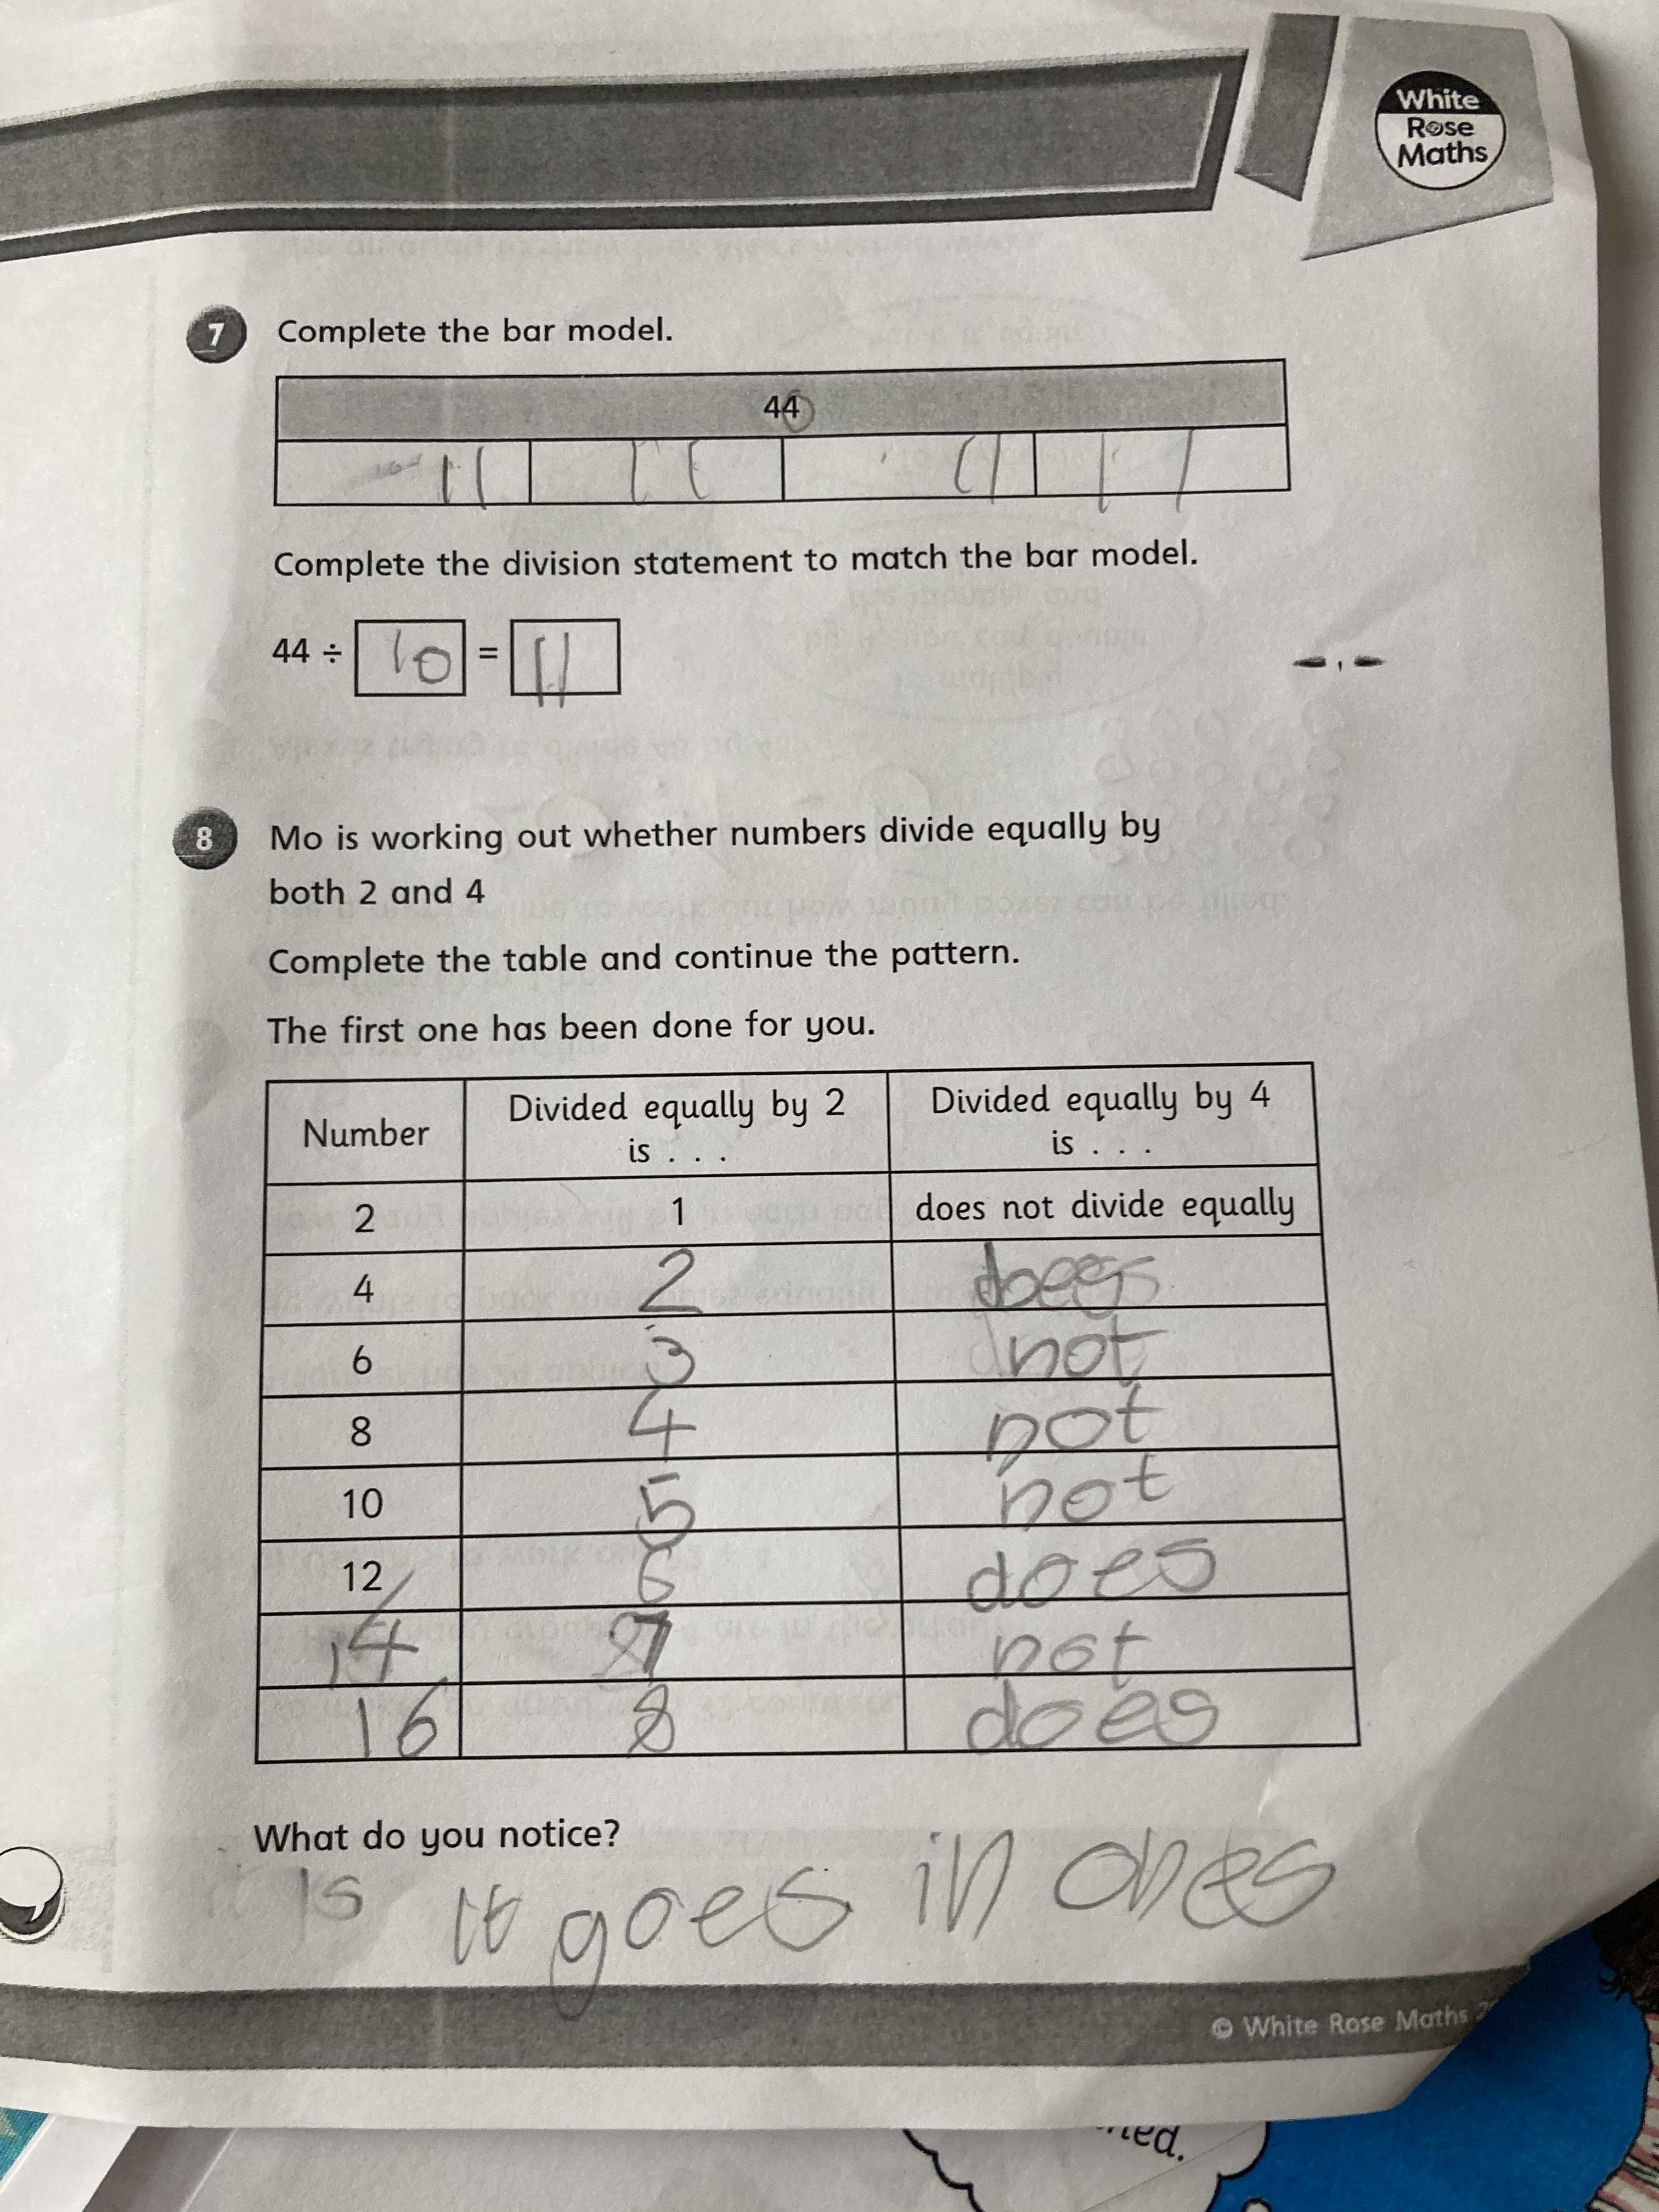 White
Rose
Maths
7 Complete the bar model.
44
11 11 11 11
Complete the division statement to match the bar model.
44 ÷ 10 = 11
8 Mo is working out whether numbers divide equally by
both 2 and 4
Complete the table and continue the pattern.
The first one has been done for you.
Number Divided equally by 2 is . . . Divided equally by 4 is . . .
2 1 does not divide equally
4 2 does
6 3 not
8 4 not
10 5 not
12 6 does
14 7 not
16 8 does
What do you notice?
it is It goes in ones
© White Rose Maths